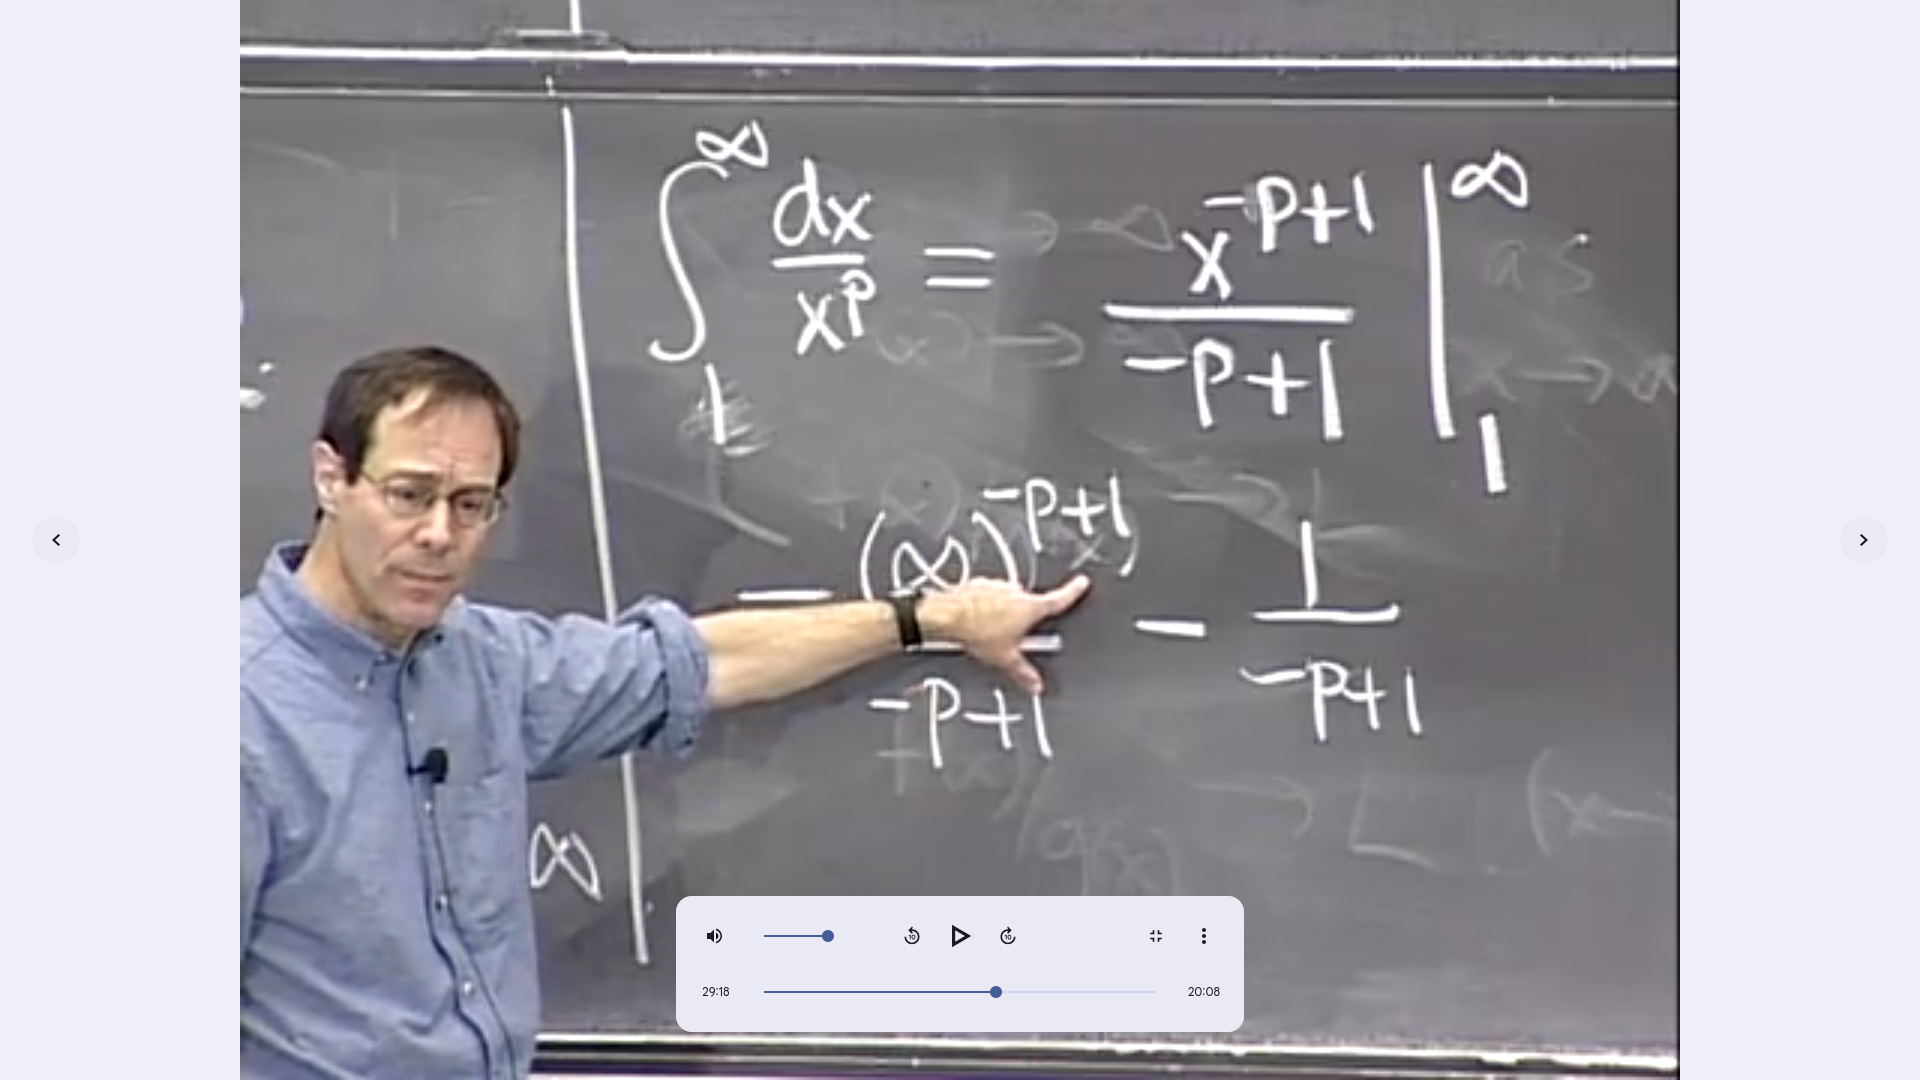 ∫₁^∞ dx/x^p = x^(-p+1)/(-p+1) |₁^∞
= (∞)^(-p+1)/(-p+1) - 1/(-p+1)
∞
29:18 20:08